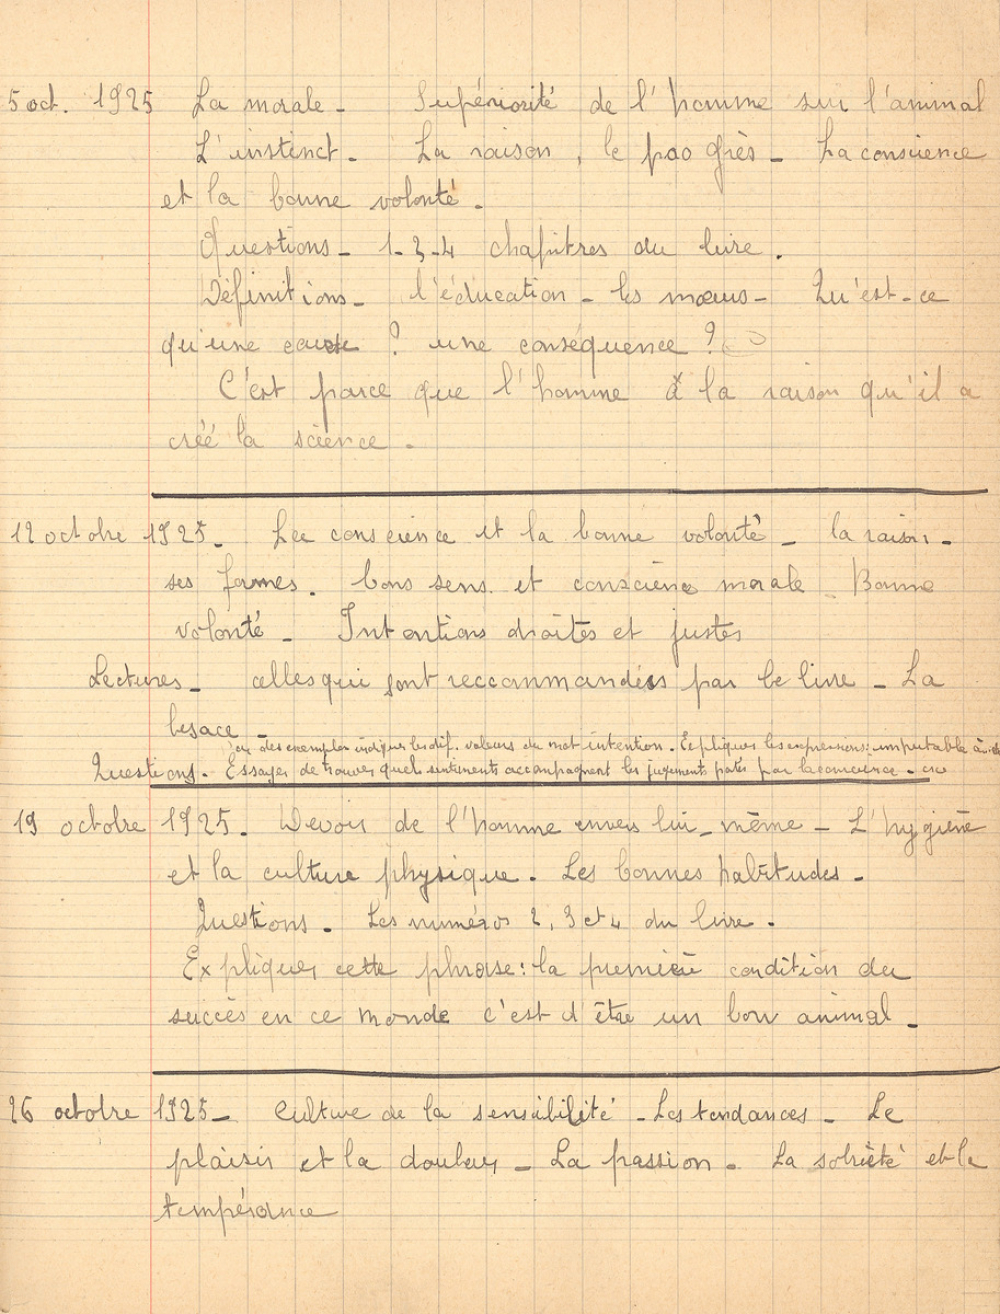 5 oct. 1925 La morale - Supériorité de l'homme sur l'animal
L'instinct - La raison, le progrès - La conscience
et la bonne volonté.
Questions - 1-3-4 chapitres du livre.
Définitions - l'éducation - les mœurs - Qu'est-ce
qu'une cause ? une conséquence ?
C'est parce que l'homme a la raison qu'il a
créé la science.
12 octobre 1925. La conscience et la bonne volonté - la raison -
ses formes. bons sens et conscience morale - Bonne
volonté - Intentions droites et justes
Lectures - celles qui sont reccommandées par le livre - La
besace -
par des exemples indiquer les dif. valeurs du mot intention. Expliquer les expressions: imputable à
Questions. Essayer de trouver quels sentiments accompagnent les jugements portés par la conscience -
19 octobre 1925. Devoir de l'homme envers lui-même - L'hygiène
et la culture physique. Les bonnes habitudes.
Questions. Les numéros 2, 3 et 4 du livre.
Expliquer cette phrase: la première condition du
succès en ce monde c'est d'être un bon animal.
26 octobre 1925 - Culture de la sensibilité - Les tendances - Le
plaisir et la douleur - La passion. La sobriété et la
tempérance